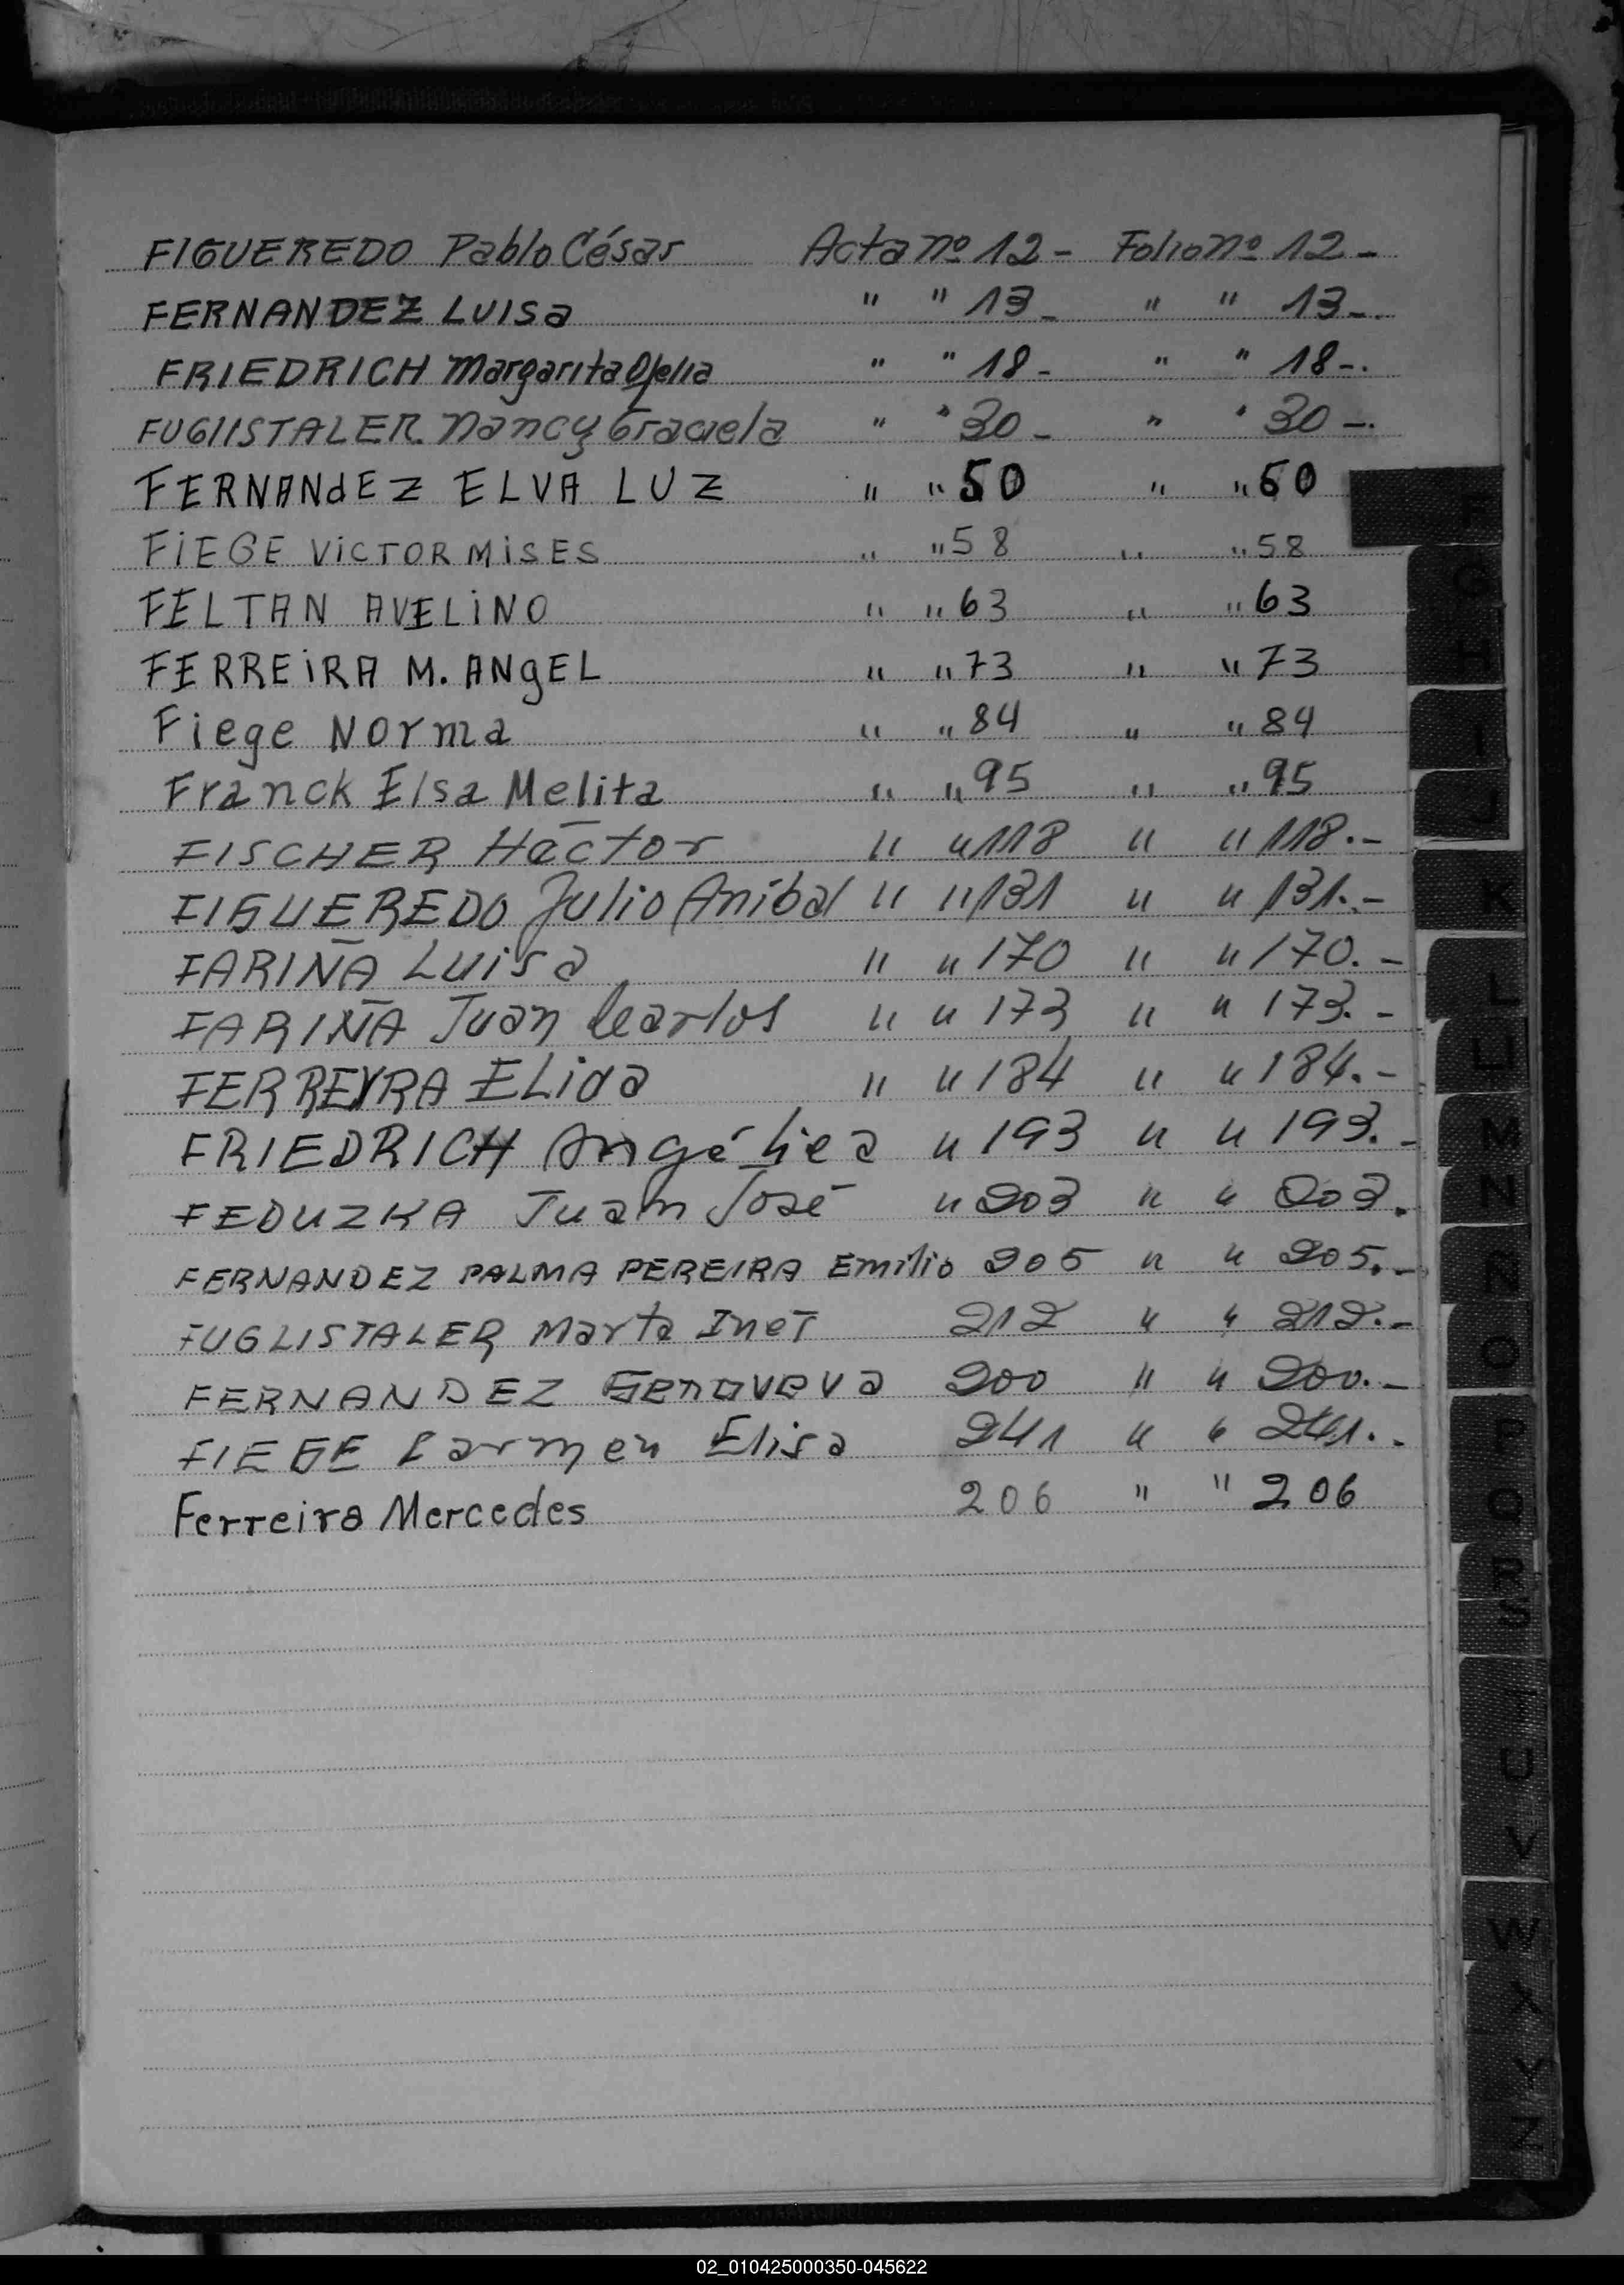 FIGUEREDO Pablo César Acta nº 12 - Folio nº 12 -
FERNANDEZ LUISa " " 13 - " " 13 -.
FRIEDRICH Margarita Ofelia " " 18 - " " 18 -.
FUGLISTALER. Nancy Graciela " " 30 - " " 30 -.
FERNANdEZ ELVA LUZ " " 50 " " 50
FiEGE VicTOR MisES " " 58 " " 58
FELTAN AVELiNO " " 63 " " 63
FERREiRA M. ANgEL " " 73 " " 73
Fiege Norma " " 84 " " 84
Franck Elsa Melita " " 95 " " 95
FISCHER Héctor " " 118 " " 118.-
FIGUEREDO Julio Aníbal " " 131 " " 131.-
FARIÑA Luisa " " 170 " " 170.-
FARIÑA Juan Carlos " " 173 " " 173.-
FERREYRA ELida " " 184 " " 184.-
FRIEDRICH Angélica " 193 " " 193.-
FEDUZKA Juan José " 203 " " 203.
FERNANDEZ PALMA PEREIRA Emilio 205 " " 205.-
FUGLISTALER Marta Inés 212 " " 212.-
FERNANDEZ Genoveva 200 " " 200.-
FIEGE Carmen Elisa 241 " " 241.-
Ferreira Mercedes 206 " " 206
F
G
H
I
J
K
L
LL
M
N
Ñ
O
P
Q
R
S
T
U
V
W
X
Y
Z
02_010425000350-045622